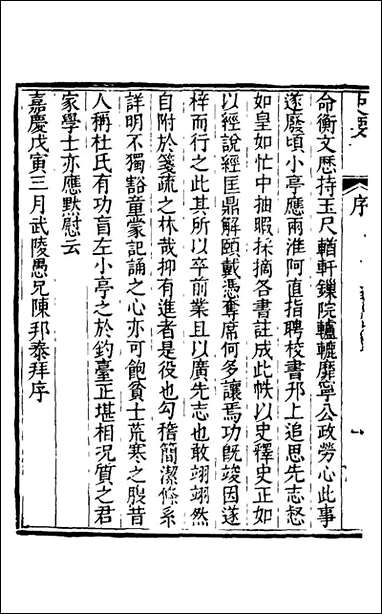 命衡文歷持玉尺輶軒鏁院轆轆靡寧公政勞心此事
遂廢頃小亭應兩淮阿直指聘校書邗上追思先志惄
如皇如忙中抽暇採摘各書註成此帙以史釋史正如
以經說經匡鼎解頤戴憑奪席何多讓焉功旣竣因遂
梓而行之此其所以卒前業且以廣先志也敢翊翊然
自附於箋疏之林哉抑有進者是役也勾稽簡潔條系
詳明不獨豁童蒙記誦之心亦可飽貧士荒寒之腹昔
人稱杜氏有功盲左小亭之於釣臺正堪相況質之君
家學士亦應默慰云
嘉慶戊寅三月武陵愚兄陳邦泰拜序
序